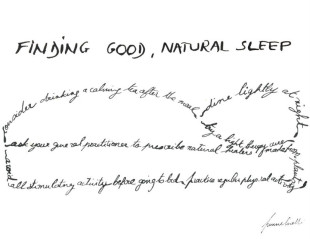 FINDING GOOD, NATURAL SLEEP
consider drinking a calming tea after the meal
dine lightly at night
try a light therapy
ask your general practitioner to prescribe natural
avoid all stimulating activity before going to bed
practice regular physical activity